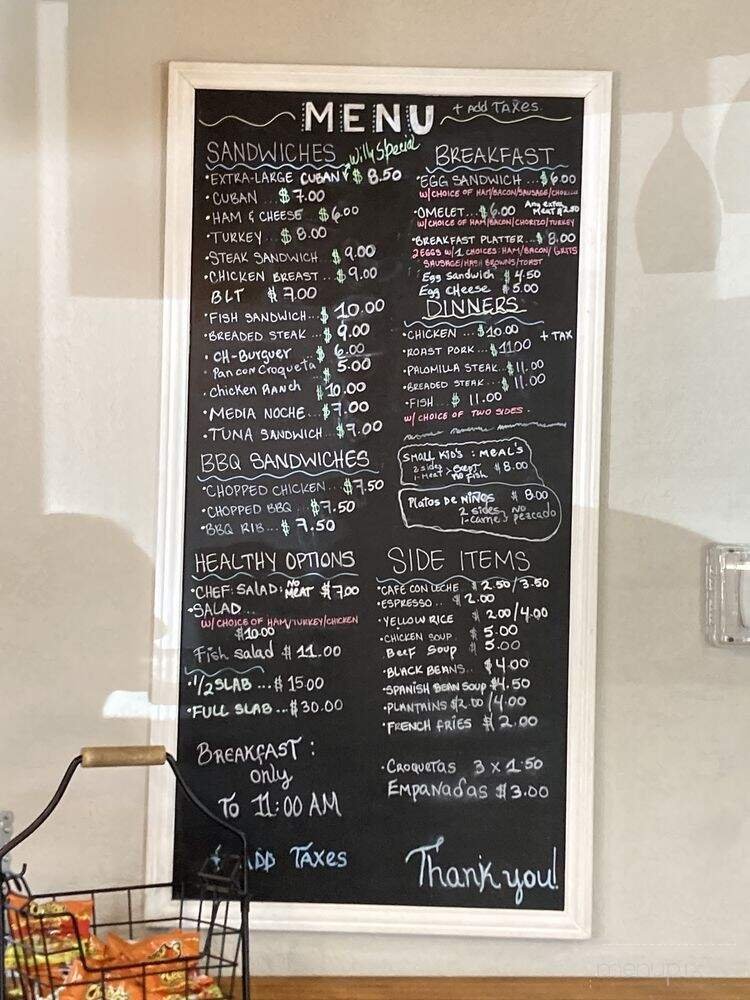 MENU + Add Taxes
SANDWICHES Willy Special
•EXTRA-LARGE CUBAN $8.50
•CUBAN ... $7.00
•HAM & CHEESE $6.00
•TURKEY... $8.00
•STEAK SANDWICH $9.00
•CHICKEN BREAST... $9.00
BLT $7.00
•FISH SANDWICH... $10.00
•BREADED STEAK... $9.00
•CH-Burguer $6.00
•Pan con Croqueta $5.00
•Chicken Ranch $10.00
•MEDIA NOCHE... $7.00
•TUNA SANDWICH $7.00
BBQ SANDWICHES
•CHOPPED CHICKEN... $7.50
•CHOPPED BBQ... $7.50
•BBQ RIB... $7.50
HEALTHY OPTIONS
•CHEF: SALAD: NO MEAT $7.00
•SALAD...
W/CHOICE OF HAM/TURKEY/CHICKEN
$10.00
Fish salad $11.00
•1/2 SLAB... $15.00
•FULL SLAB... $30.00
BREAKFAST:
only
To 11:00 AM
+ ADD TAXES
BREAKFAST
•EGG SANDWICH... $6.00
W/CHOICE OF HAM/BACON/SAUSAGE/CHORIZO
•OMELET... $6.00 Any extra MEAT $2.50
W/CHOICE OF HAM/BACON/CHORIZO/TURKEY
•BREAKFAST PLATTER... $8.00
2 EGGS W/1 CHOICES: HAM/BACON/GRITS
SAUSAGE/HASH BROWNS/TOAST
Egg Sandwich $4.50
Egg CHeese $5.00
DINNERS
•CHICKEN... $10.00 + TAX
•ROAST PORK... $11.00
•PALOMILLA STEAK... $11.00
•BREADED STEAK... $11.00
•FISH... $11.00
W/ CHOICE OF TWO SIDES.
SMALL KID'S: MEAL'S
2 sides
1-MeAt > Exept NO FISH $8.00
Platos De NIÑOS $8.00
2 sides
1-carne > NO pezcado
SIDE ITEMS
•CAFE CON LECHE $2.50/3.50
•ESPRESSO.. $2.00
•YELLOW RICE $2.00/4.00
•CHICKEN SOUP $5.00
BeeF Soup $5.00
•BLACK BEANS.. $4.00
•SPANISH BEAN SOUP $4.50
•PLANTAINS $2.00/4.00
•FRENCH FRIES $2.00
•CROQUETAS 3 x 1.50
EMPANADAS $3.00
Thank you!
menupix